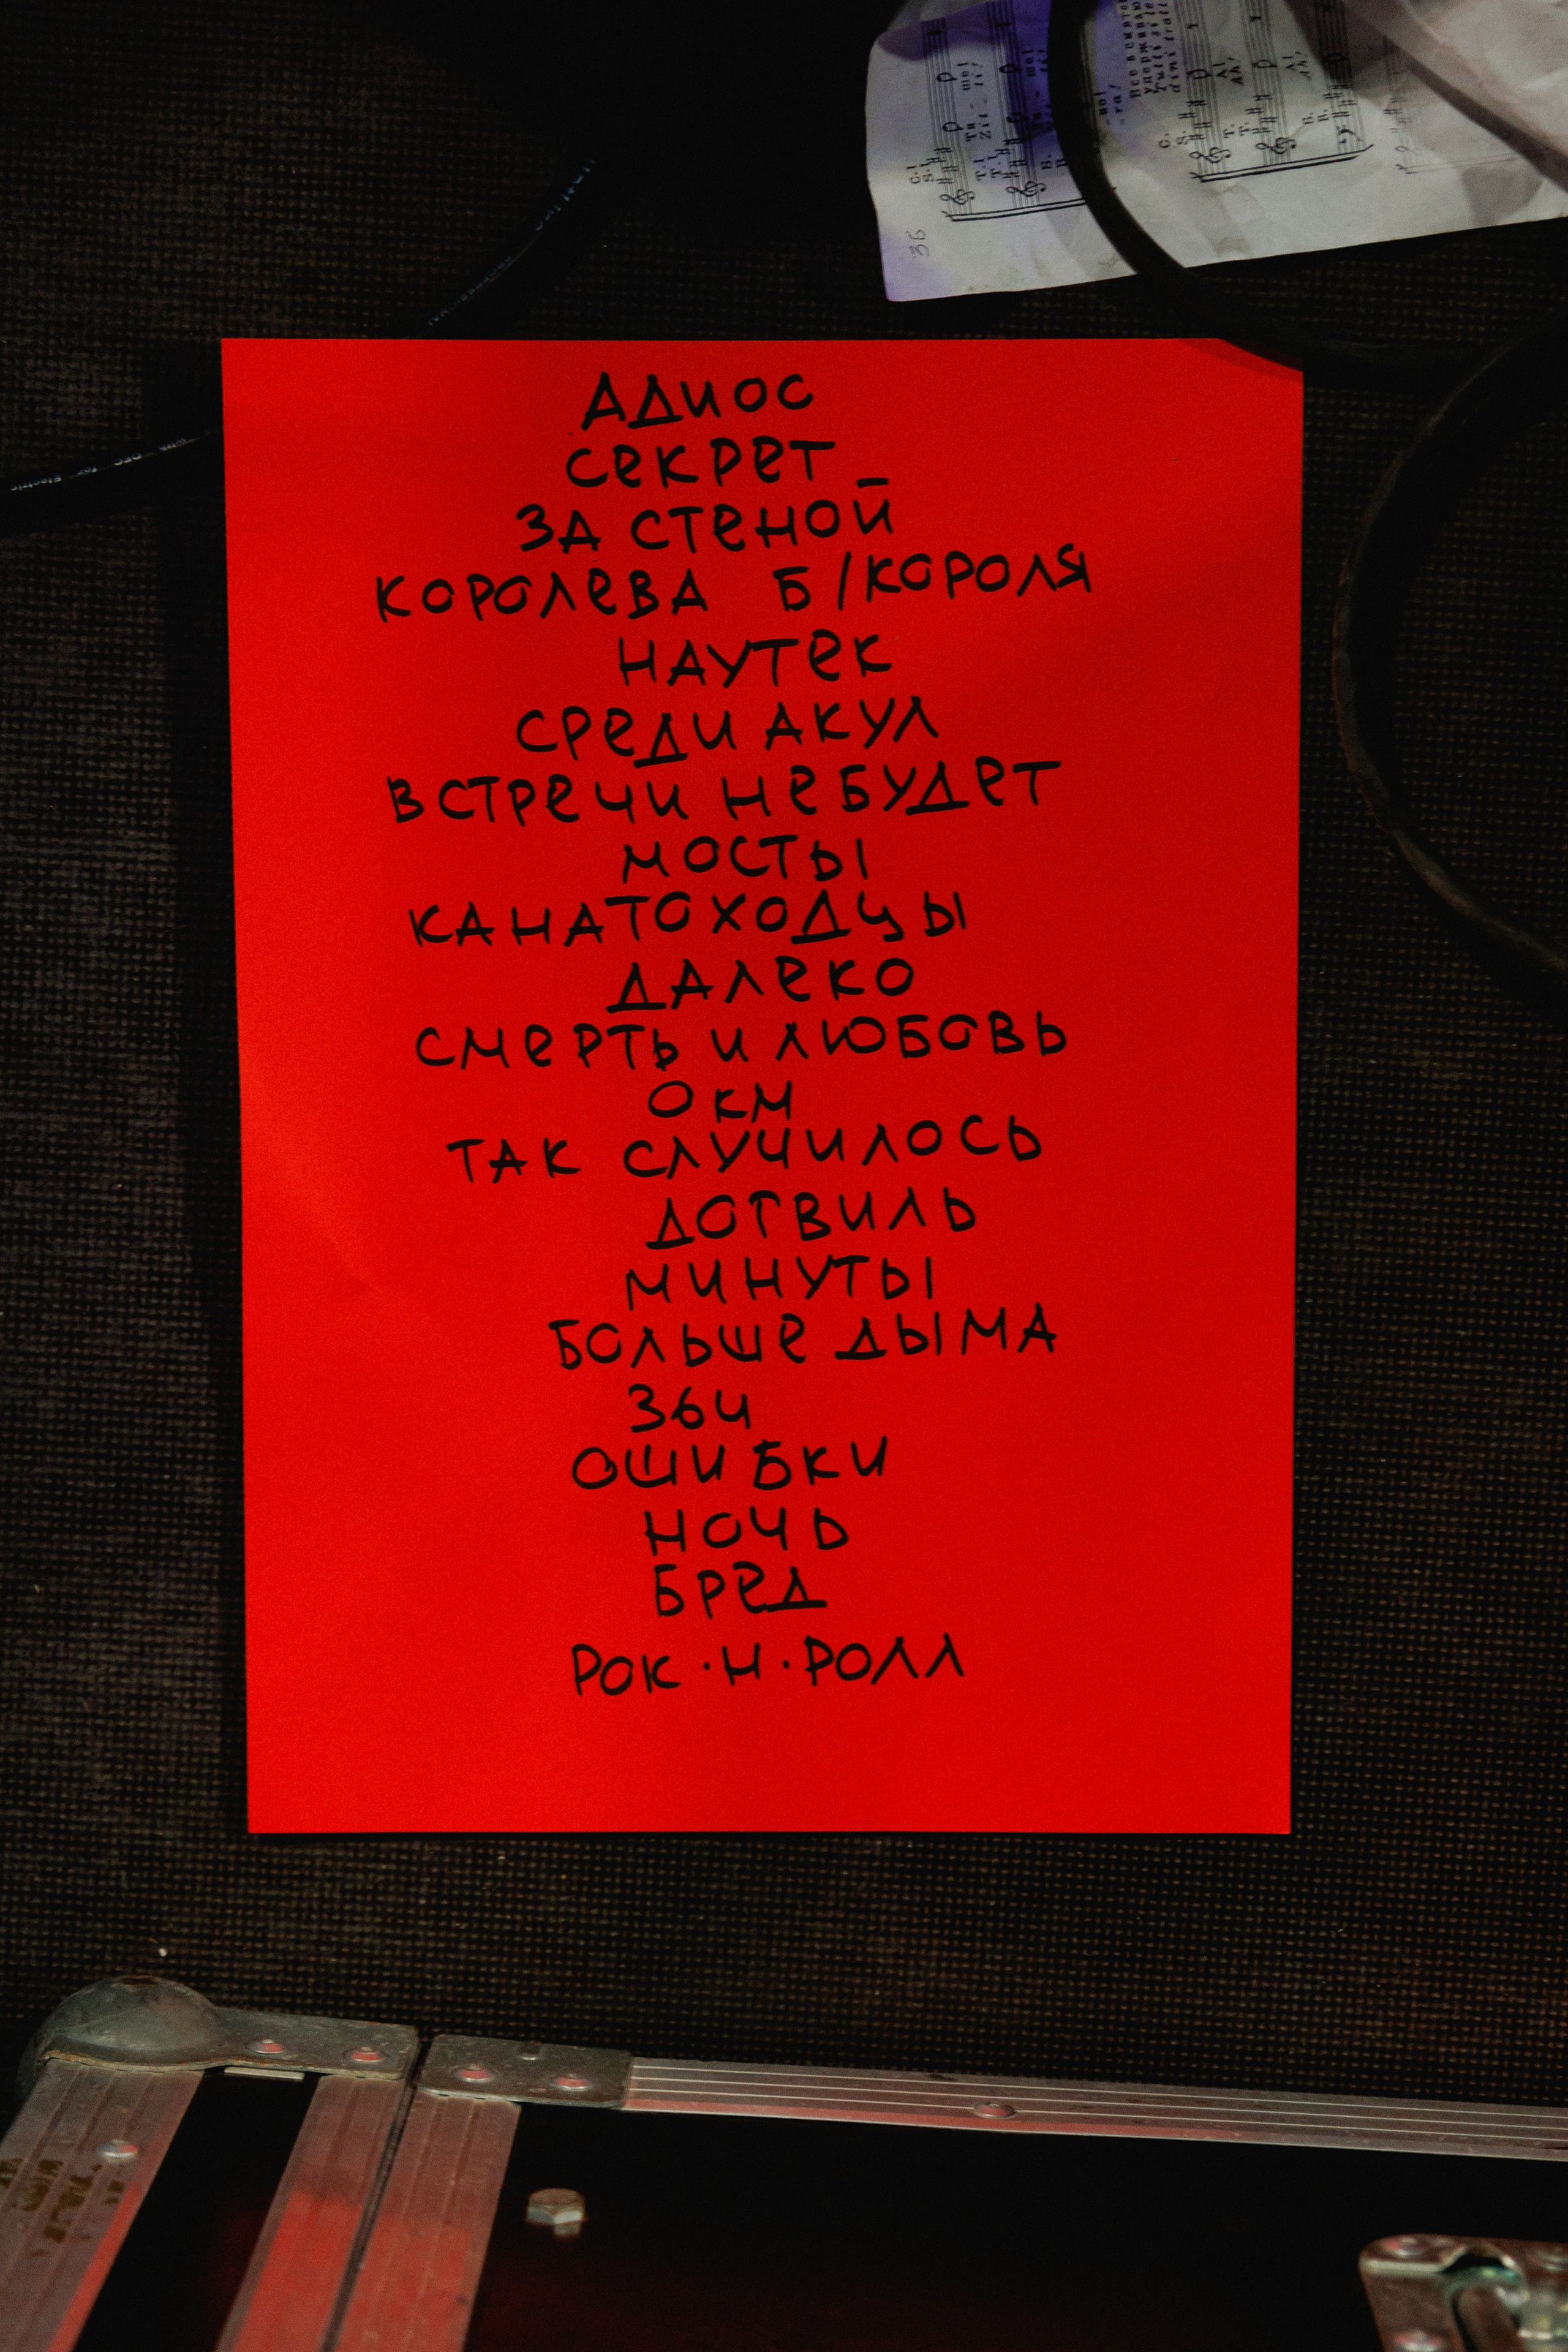 АДИОС
СЕКРЕТ
ЗА СТЕНОЙ
КОРОЛЕВА Б/КОРОЛЯ
НАУТЕК
СРЕДИ АКУЛ
ВСТРЕЧИ НЕ БУДЕТ
МОСТЫ
КАНАТОХОДЦЫ
ДАЛЕКО
СМЕРТЬ И ЛЮБОВЬ
0 КМ
ТАК СЛУЧИЛОСЬ
ДОТВИЛЬ
МИНУТЫ
БОЛЬШЕ ДЫМА
36Ч
ОШИБКИ
НОЧЬ
БРЕД
РОК·Н·РОЛЛ
36